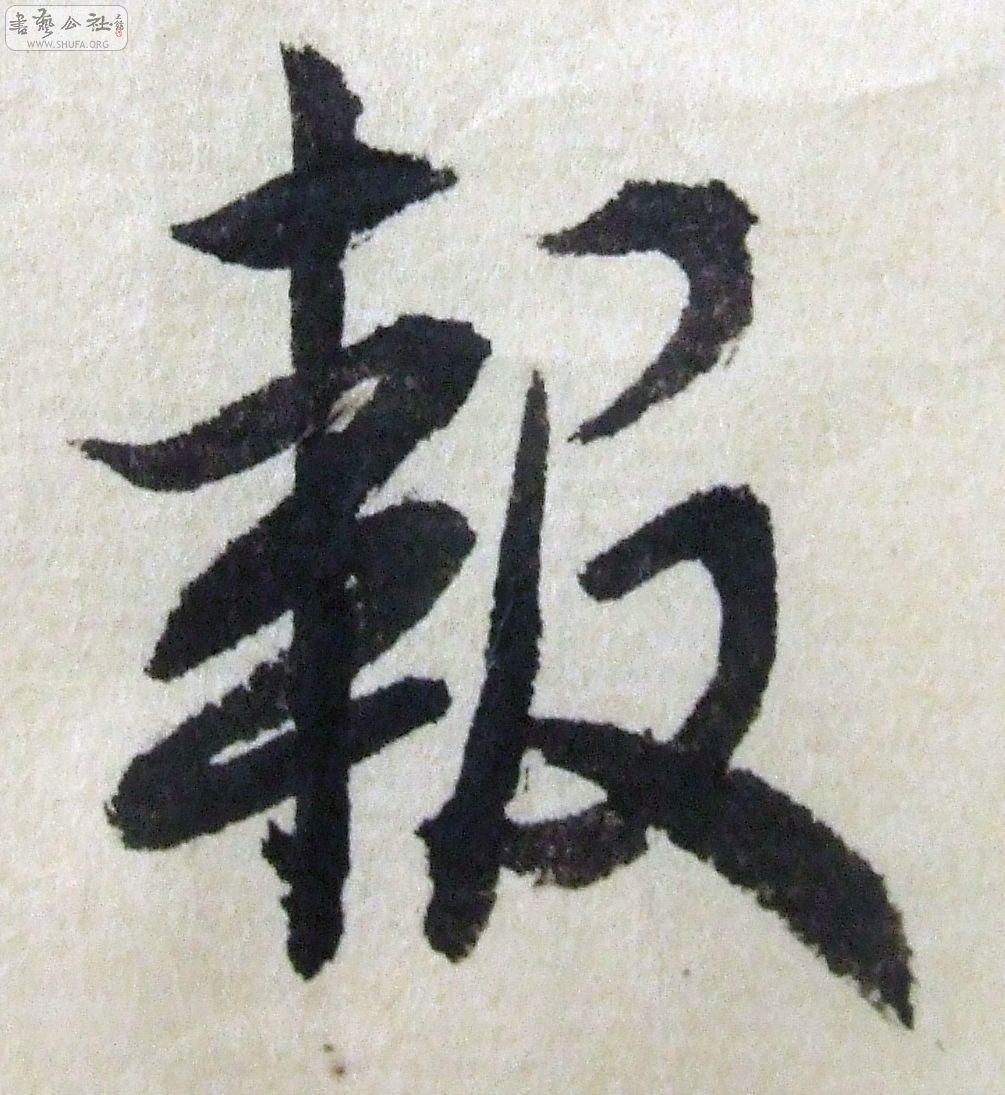 書藝公社
WWW.SHUFA.ORG
報